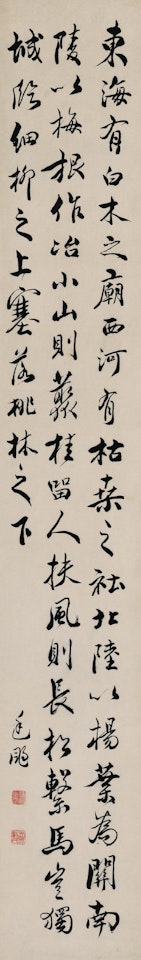 東海有白木之廟西河有枯桒之社北陸以楊葉為關南
陵以梅根作冶小山則叢桂留人扶風則長松繫馬豈獨
城臨細柳之上塞落桃林之下